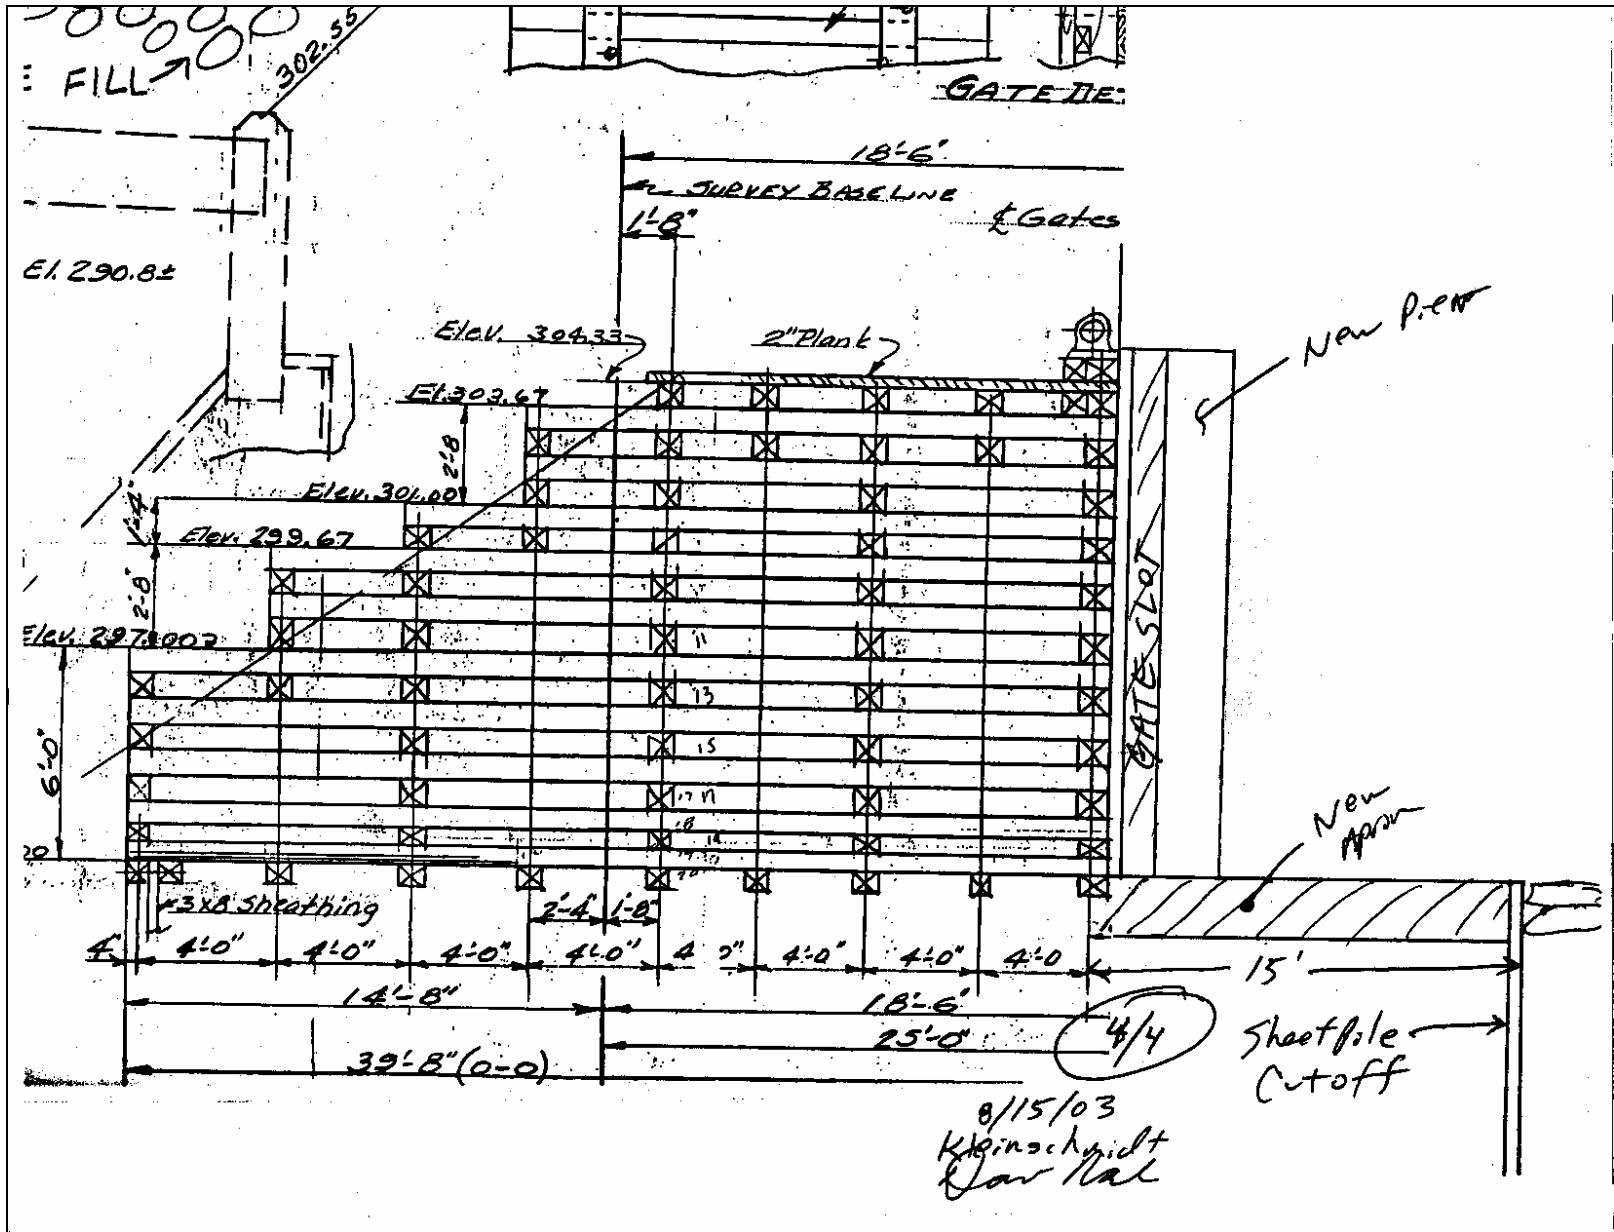 302.55
FILL
GATE DE
18'-6"
SURVEY BASELINE
1'-8"
℄ Gates
El. 290.8±
Elev. 304.33
2" Plank
New Pier
El. 303.67
2'-8
Elev. 301.00
1'-4"
Elev. 299.67
2'-8"
Elev. 297.00
GATE SLOT
11
13
15
6'-0"
17
18
New
Apron
20
3x8 Sheathing
2'-4" 1'-8"
4" 4'-0" 4'-0" 4'-0" 4'-0" 4 0" 4'-0" 4'-0" 4'-0 15'
14'-8" 18'-6"
25'-0"
4/4
Sheet Pile
Cutoff
39'-8" (0-0)
8/15/03
Kleinschmidt